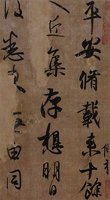 平安脩載來十餘
人近集存想明日
復悉來無由同